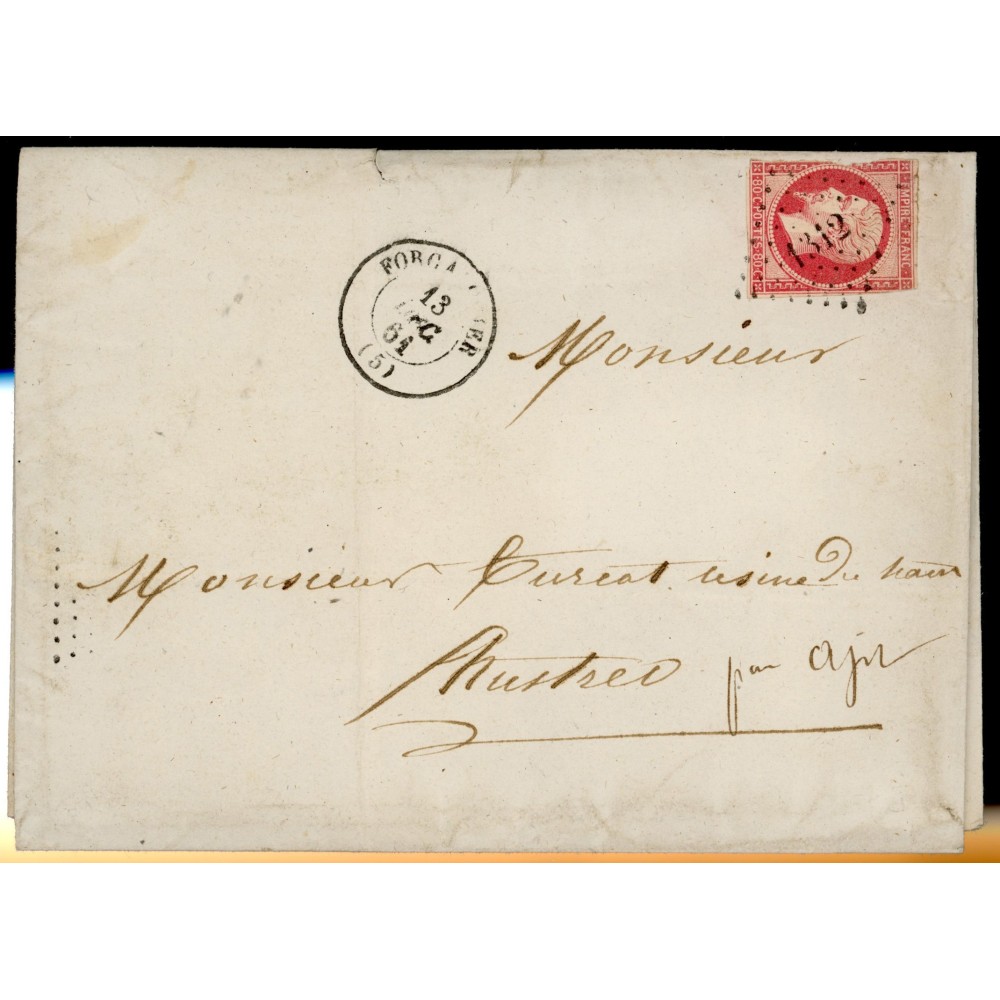 EMPIRE FRANC.
80 C. POSTES 80 C.
1312
FORCA   IER
13
DEC
61
(5)
Monsieur
Monsieur Turcat usine du
Rustrel par Apt